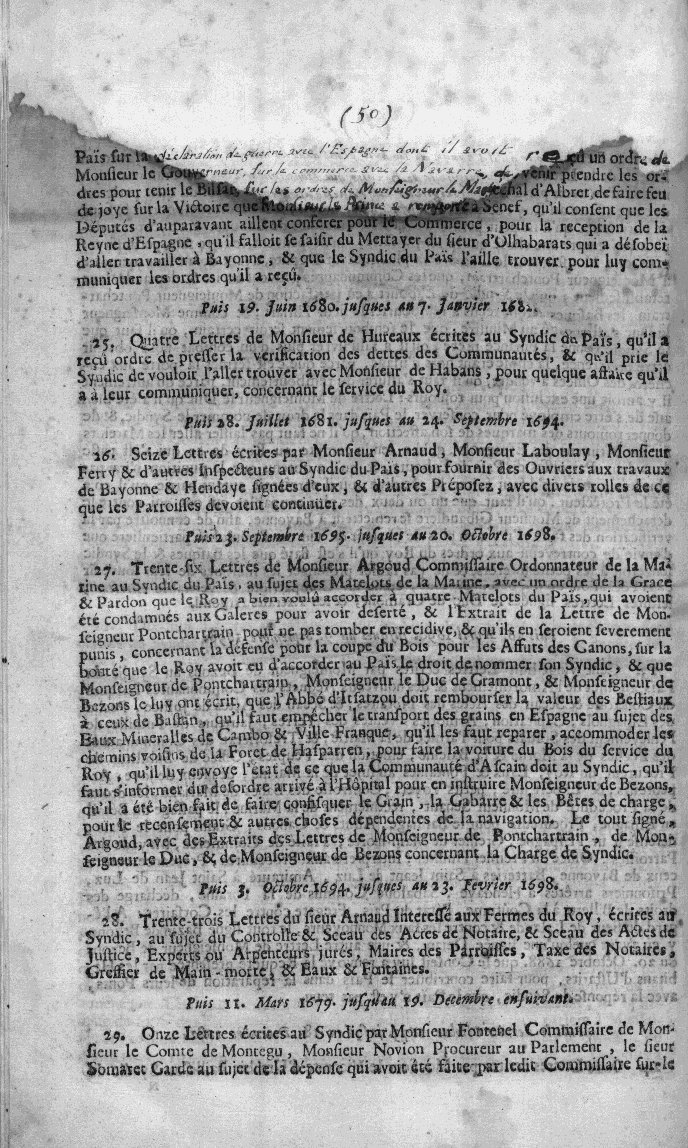 (50)
Païs sur la déclaration de guerre avec l'Espagne dont il avoit reçu un ordre de
Monsieur le Gouverneur, sur le commerce avec la Navarre, de venir prendre les or-
dres pour tenir le Bilsar, sur les ordres de Monseigneur le Maréchal d'Albret, de faire feu
de joye sur la Victoire que Monsieur le Prince a remporté à Senef, qu'il consent que les
Députés d'auparavant aillent conferer pour le Commerce, pour la reception de la
Reyne d'Espagne, qu'il falloit se saisir du Mettayer du sieur d'Olhabarats qui a désobeï
d'aller travailler à Bayonne, & que le Syndic du Païs l'aille trouver pour luy com-
muniquer les ordres qu'il a reçû.
Puis 19. Juin 1680. jusques au 7. Janvier 1682.
25. Quatre Lettres de Monsieur de Hureaux écrites au Syndic du Païs, qu'il a
reçû ordre de presser la vérification des dettes des Communautés, & qu'il prie le
Syndic de vouloir l'aller trouver avec Monsieur de Habans, pour quelque affaire qu'il
a à leur communiquer, concernant le service du Roy.
Puis 28. Juillet 1681. jusques au 24. Septembre 1694.
26. Seize Lettres écrites par Monsieur Arnaud, Monsieur Laboulay, Monsieur
Ferry & d'autres Inspecteurs au Syndic du Païs, pour fournir des Ouvriers aux travaux
de Bayonne & Hendaye signées d'eux, & d'autres Préposez, avec divers rolles de ce
que les Parroisses devoient continuer.
Puis 23. Septembre 1695. jusques au 20. Octobre 1698.
27. Trente-six Lettres de Monsieur Argoud Commissaire Ordonnateur de la Ma-
rine au Syndic du Païs, au sujet des Matelots de la Marine, avec un ordre de la Grace
& Pardon que le Roy a bien voulû accorder à quatre Matelots du Païs, qui avoient
été condamnés aux Galeres pour avoir deserté, & l'Extrait de la Lettre de Mon-
seigneur Pontchartrain pour ne pas tomber en recidive, & qu'ils en seroient severement
punis, concernant la défense pour la coupe du Bois pour les Affuts des Canons, sur la
bonté que le Roy avoit eu d'accorder au Païs le droit de nommer son Syndic, & que
Monseigneur de Pontchartrain, Monseigneur le Duc de Gramont, & Monseigneur de
Bezons le luy ont écrit, que l'Abbé d'Itsatzou doit rembourser la valeur des Bestiaux
à ceux de Bastan, qu'il faut empécher le transport des grains en Espagne au sujet des
Eaux Mineralles de Cambo & Ville Franque, qu'il les faut reparer, accommoder les
chemins voisins de la Foret de Hasparren, pour faire la voiture du Bois du service du
Roy, qu'il luy envoye l'état de ce que la Communauté d'Ascain doit au Syndic, qu'il
faut s'informer du desordre arrivé à l'Hôpital pour en instruire Monseigneur de Bezons,
qu'il a été bien fait de faire confisquer le Grain, la Gabarre & les Bêtes de charge,
pour le recensement & autres choses dépendentes de la navigation. Le tout signé,
Argoud, avec des Extraits des Lettres de Monseigneur de Pontchartrain, de Mon-
seigneur le Duc, & de Monseigneur de Bezons concernant la Charge de Syndic.
Puis 3. Octobre 1694. jusques au 23. Fevrier 1698.
28. Trente-trois Lettres du sieur Arnaud Interessé aux Fermes du Roy, écrites au
Syndic, au sujet du Controlle & Sceau des Actes de Notaire, & Sceau des Actes de
Justice, Experts ou Arpenteurs jurés, Maires des Parroisses, Taxe des Notaires,
Greffier de Main-morte, & Eaux & Fontaines.
Puis 11. Mars 1679. jusqu'au 19. Decembre ensuivant.
29. Onze Lettres écrites au Syndic par Monsieur Fontenel Commissaire de Mon-
sieur le Comte de Montegu, Monsieur Novion Procureur au Parlement, le sieur
Somaret Garde au sujet de la dépense qui avoit été faite par ledit Commissaire sur le